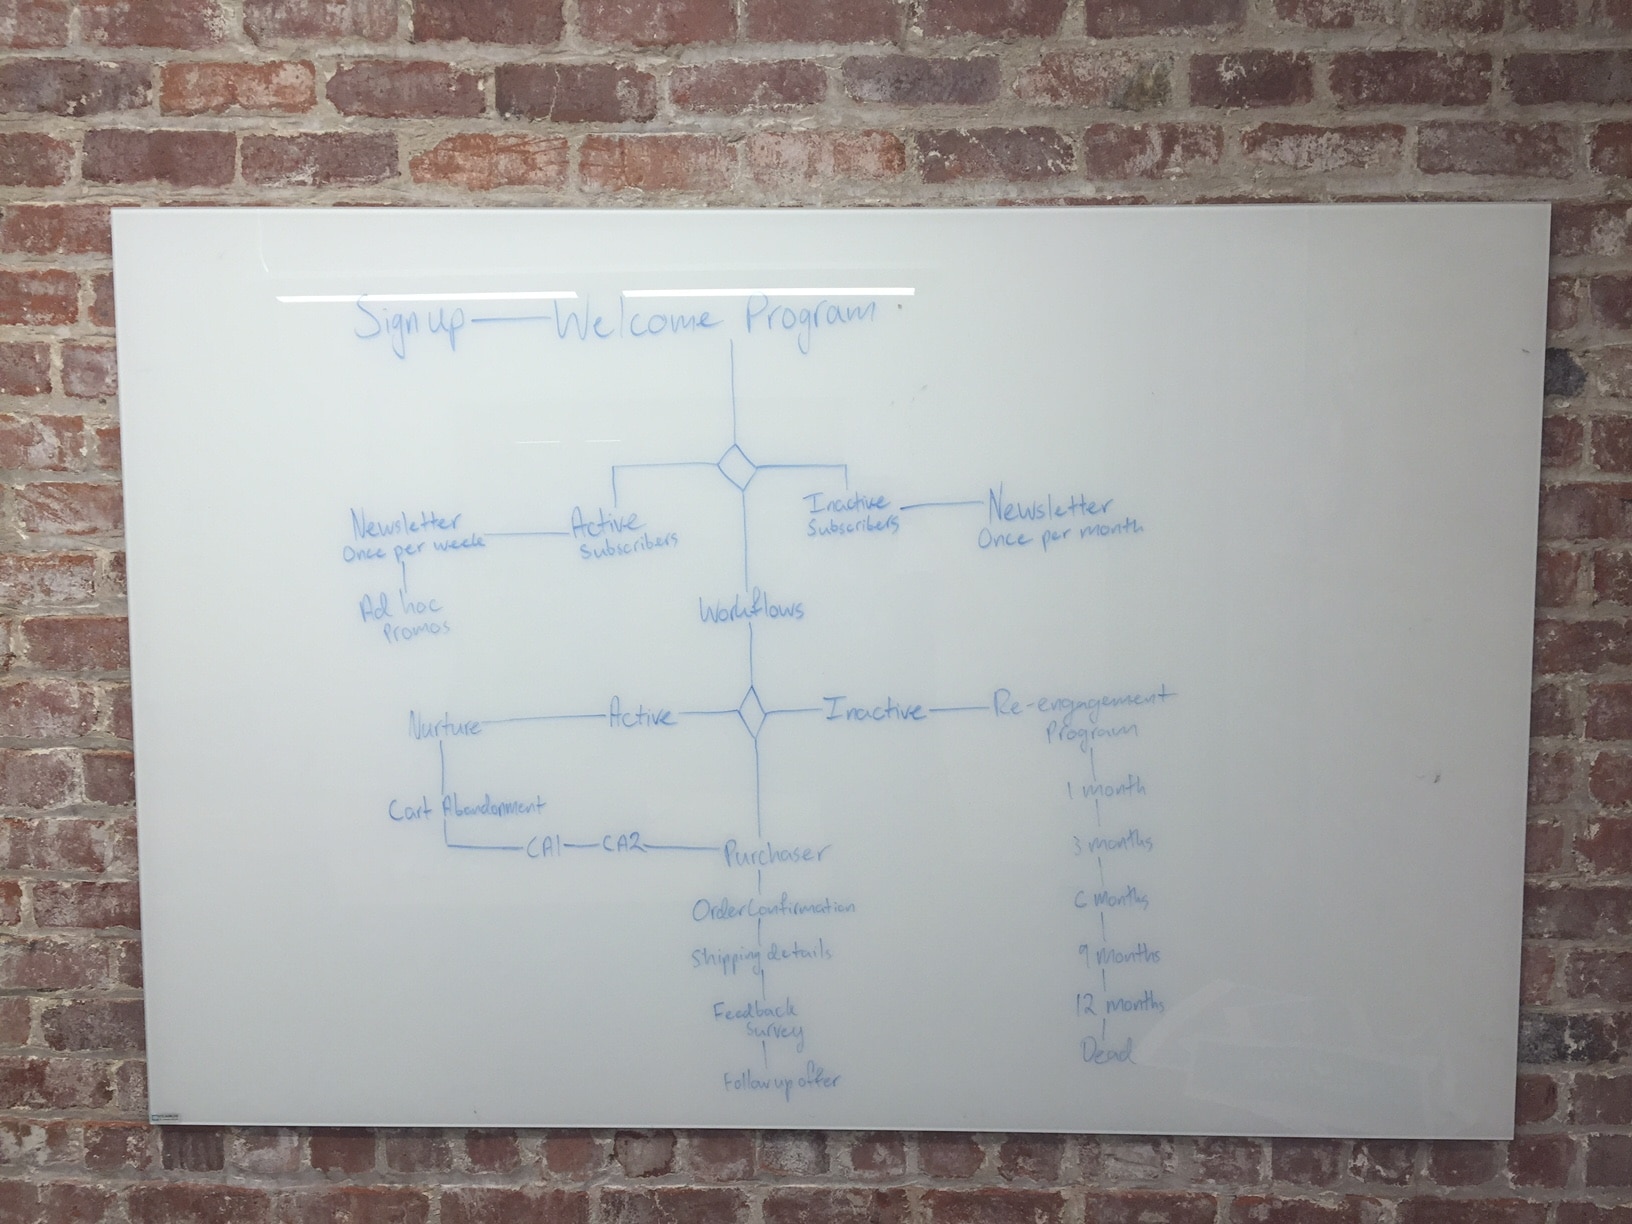 Sign up — Welcome Program
Newsletter
Once per week
Active
Subscribers
Inactive
Subscribers
Newsletter
Once per month
Ad hoc
Promos
Workflows
Nurture
Active
Inactive
Re-engagement
Program
1 month
Cart Abandonment
CA1 — CA2
Purchaser
3 months
Order Confirmation
6 months
Shipping details
9 months
Feedback
Survey
12 months
Follow up offer
Dead